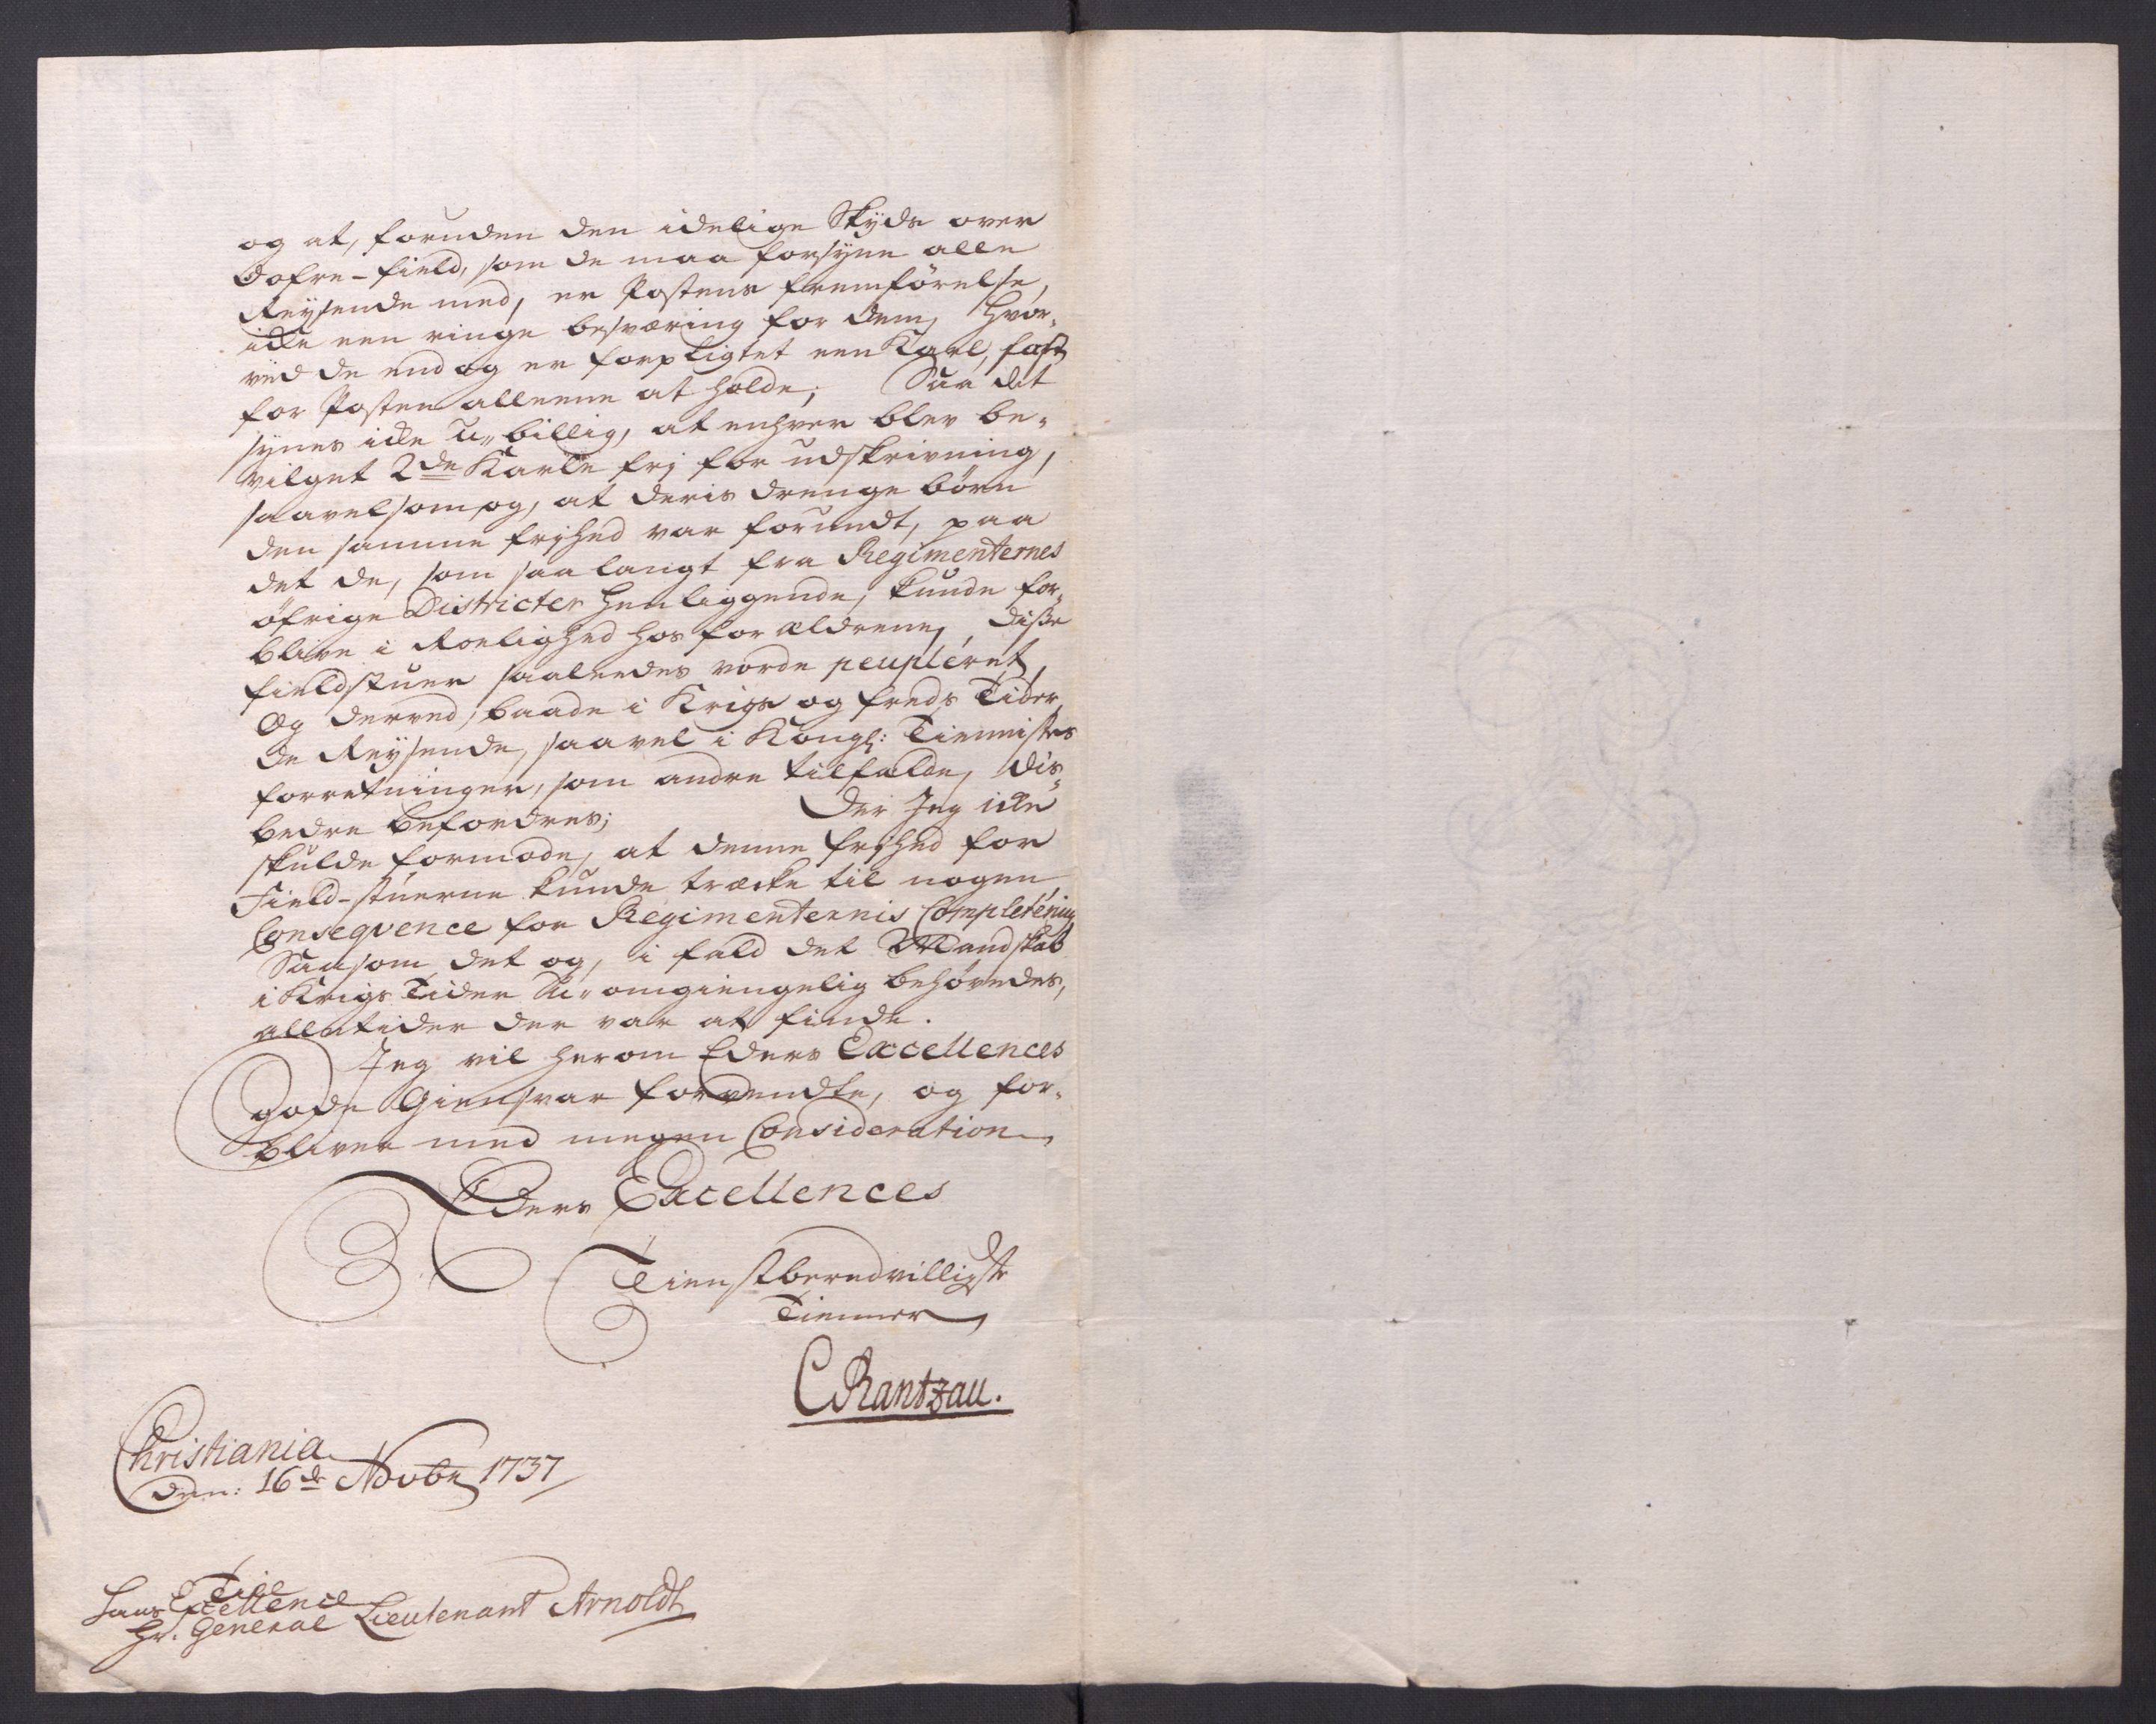 og at, foruden den idelige Skyds over
Dofre-field, som de maa forsyne alle
Reysende med, er Postens fremførelse,
icke een ringe besværing for dem, hvor-
ved de endog er forpligtet een Karl, fast
for Posten alleene at holde; Saa det
synes icke u-billig, at enhver blev be-
vilget 2de Karle frj for udskrivning,
saavelsom og, at deris drenge børn
den samme frjhed var forundt, paa
det de, som saa langt fra Regimenternes
öfrige Districter henliggende, kunde for-
blive i Roelighed hos forældrene, disse
fieldstuer saaleedes vorde peupléret,
Og derved, baade i Krigs og freds Tider,
de Reysende, saavel i Kongl: Tiennistes
forretninger, som andre tilfælde, dis-
bedre befordres; Der Jeg icke
skulde formode, at denne frjhed for
Field-stuerne kunde træcke til nogen
Conseqvence for Regimenternis Complétering
Saasom det og, i fald det Mandskab
i Krigs Tider U-omgiengelig behøvedes,
alletider der var at finde.
Jeg vil herom Eders Excellences
gode Giensvar forvendte, og for-
bliver med megen Consideration
Eders Excellences
Tienstberedvilligste
Tienner
CRantzau.
Christiania
den: 16de Novbr 1737
Til
Hans Excellence
Hr. General Lieutenant Arnoldt